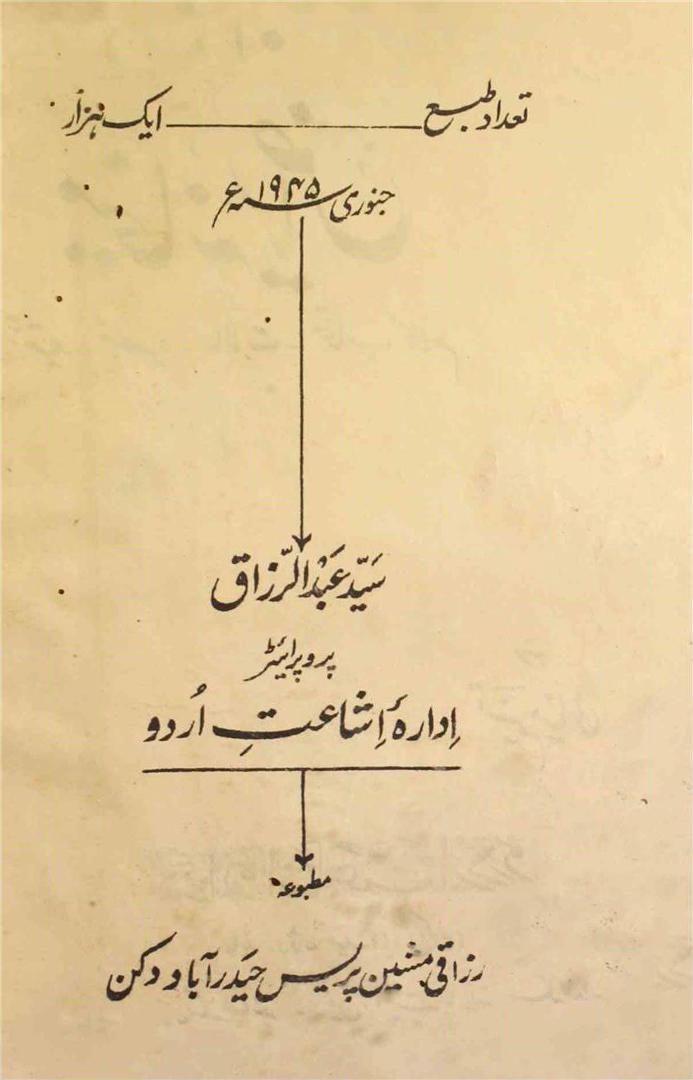 تعداد طبع ــــــــ ایک ہزار
جنوری ۱۹۴۵ء
سَیّد عَبْدالرّزاق
پروپرائیٹر
اِدارۂ اِشاعتِ اُردو
مطبوعہ
رزاقی مشین پریس حیَدرآباد دکن